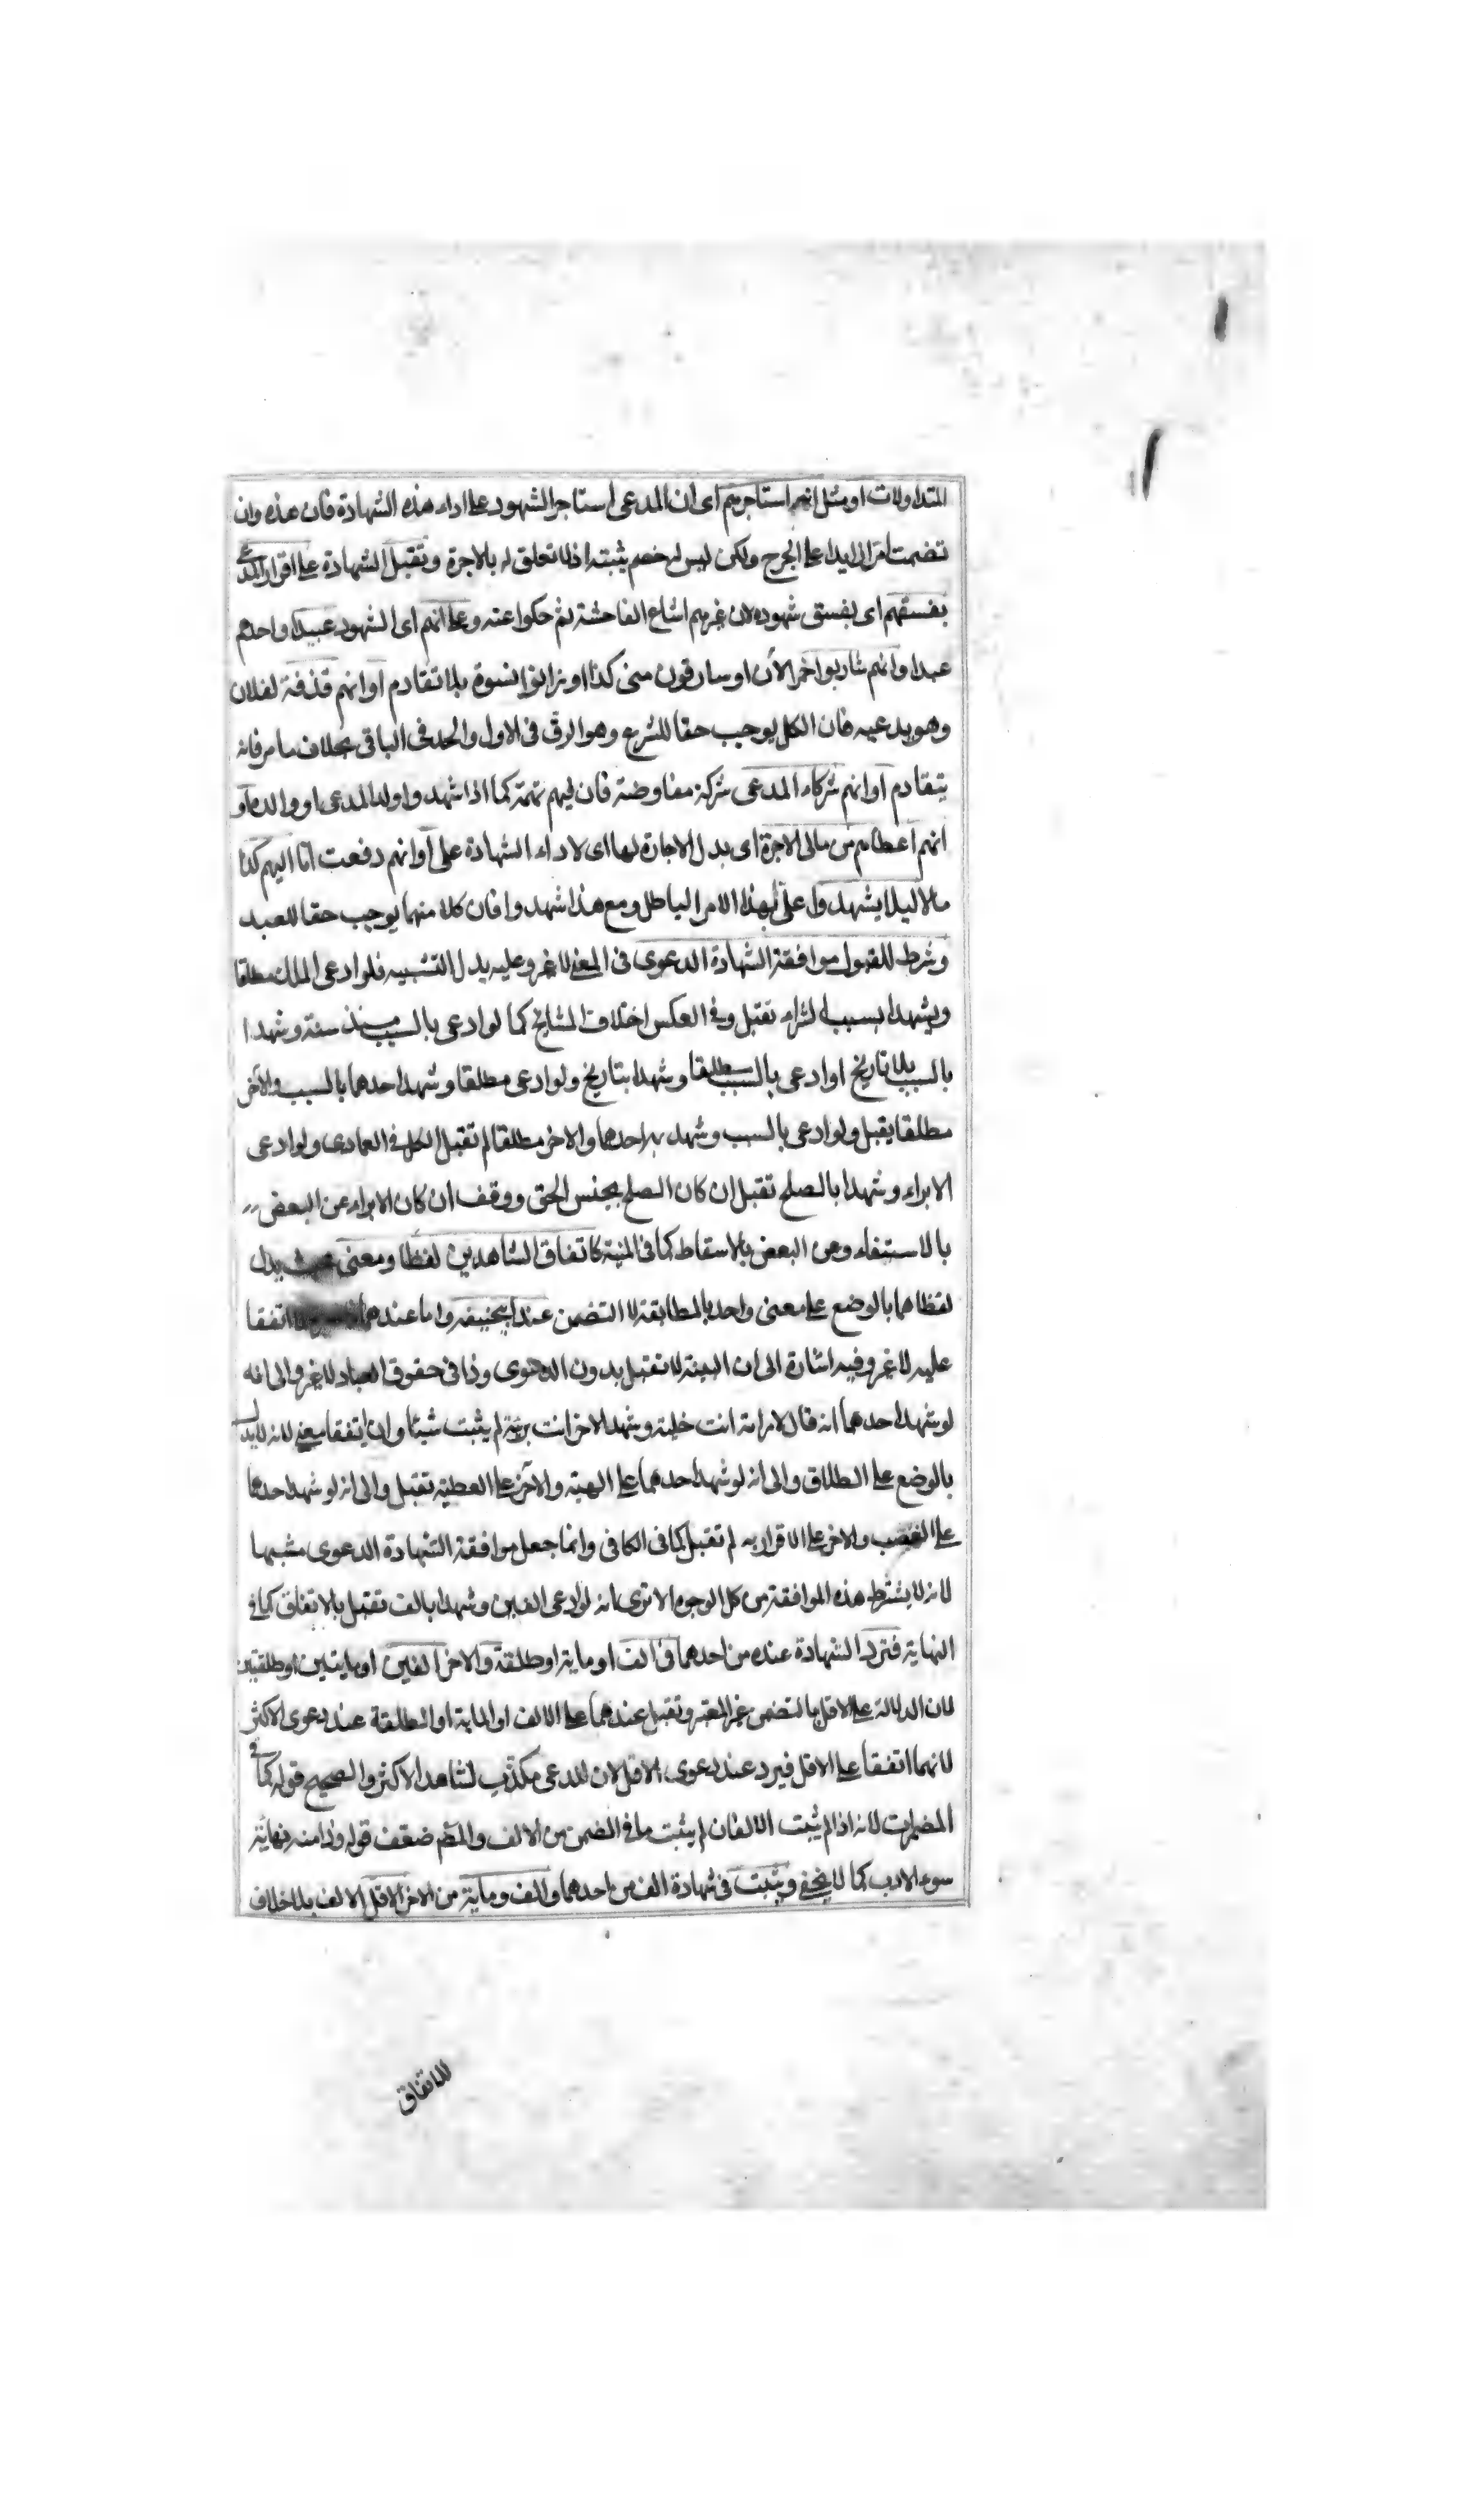 المتداولات او مثل انه استاجرهم اى ان المدعى استاجر الشهود على اداء هذه الشهادة فان هذه وان
تضمنت امرا زايدا على الجرح ولكن ليس له خصم يثبته اذ لا تعلق له بالاجرة وتقبل الشهادة على اقرار المدعى
بفسقهم اى بفسق شهوده لان غيرهم اشاع الفاحشة ثم حكوا عنه وعلى انهم اى الشهود عبيد او احدهم
عبد او انهم شاربوا خمر الآن او سارقون منى كذا او زانوا بنسوة بلا تقادم او انهم قذفة لفلان
وهو يدعيه فان الكل يوجب حقا للشرع وهو الرق فى الاول والحد فى الباقى بخلاف ما مر فانه
يتقادم او انهم شركاء المدعى شركة مفاوضة فان لهم تهمة كما اذا شهد و اولد المدعى او والده او
انهم اعطاهم من مالى الاجرة اى بدل الاجارة لها اى لاداء الشهادة على او انهم دفعت انا اليهم كذا
مالا ليلا يشهدوا على بهذا الامر الباطل ومع هذا شهدوا فان كلا منهما يوجب حقا للعبد
وشرط للقبول موافقة الشهادة الدعوى فى المعنى لا غير وعليه يدل التشبيه فلو ادعى الملك مطلقا
ويشهدا بسبب الشراء تقبل وفى العكس اختلاف المشايخ كما لو ادعى بالسبب منذ سنة وشهدا
بالسبب بلا تاريخ او ادعى بالسبب مطلقا وشهدا بتاريخ ولو ادعى مطلقا وشهد احدهما بالسبب والآخر
مطلقا يقبل ولو ادعى بالسبب وشهد به احدهما والاخر مطلقا لم تقبل الكل فى العمادى ولو ادعى
الابراء وشهدا بالصلح تقبل ان كان الصلح بجنس الحق ووقف ان كان الابراء عن البعض
بالاستيفاء وعن البعض بالاسقاط كما فى المنية كاتفاق الشاهدين لفظا ومعنى يدل
لفظاهما بالوضع على معنى واحد بالمطابقة لا التضمن عند ابيحنيفه واما عندهما اتفقا
عليه لا غير وفيه اشارة الى ان البينة لا تقبل بدون الدعوى وذا فى حقوق العباد لا غير والى انه
لو شهد احدهما انه قال لامراته انت خلية وشهد الاخر انت برئية لم يثبت شيئا وان اتفقا معنى لانه لا يدل
بالوضع على الطلاق والى انه لو شهد احدهما على الهبة والآخر على العطية تقبل والى انه لو شهد احدهما
على الغصب والاخر على الاقرار به لم تقبل كما فى الكافى وانما جعل موافقة الشهادة الدعوى مشبها
لانه لا يشترط هذه الموافقة من كل الوجوه الا ترى انه لو ادعى الفين وشهدا بالف تقبل بالاتفاق كما فى
النهاية فترد الشهادة عنده من احدهما فى الف او ماية او طلقة والاخر الفين او مايتين او طلقتين
لان الدلالة على الاقل بالتضمن غير المعتبر وتقبل عندهما على الالف او الماية او الطلقة عند دعوى الاكثر
لانهما اتفقا على الاقل فيرد عند دعوى الاقل لان المدعى مكذب لشاهد الاكثر والصحيح قوله كما فى
المضمرات لانه اذا لم يثبت الالفان لم يثبت ما فى الضمن من الالف والمتكلم ضعف قوله وذا منه نهاية
سوء الادب كما لا يخفى ويثبت فى شهادة الف من احدهما والف وماية من الاخر الاقل الالف بلا خلاف
للاتفاق